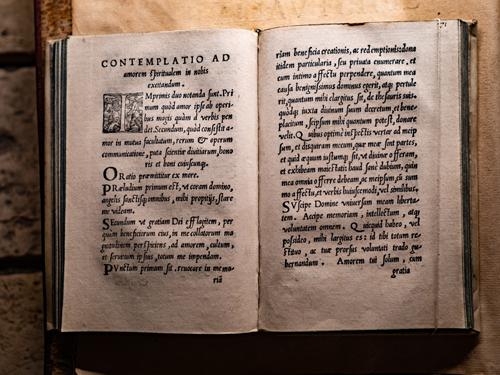 CONTEMPLATIO AD
amorem spiritualem in nobis
excitandum.
IMprimis duo notanda sunt. Pri
mum quòd amor ipse ab operi
bus magis quàm à verbis pen
det. Secundum, quòd consistit a-
mor in mutua facultatum, rerum & operum
communicatione, puta scientiæ divitiarum, hono
ris et boni cuiusque.
ORatio præmittitur ex more.
PRæludium primum est, vt coram domino,
angelis sanctisque omnibus, mihi propitijs, stare
me videam.
SEcundum vt gratiam Dei efflagitem, per
quam beneficiorum eius, in me collatorum ma
gnitudinem perspiciens, ad amorem, cultum,
et seruitium ipsius, totum me impendam.
PVnctum primum sit, reuocare in memo
riã
riam beneficia creationis, ac redemptionis: dona
itidem particularia, seu priuata enumerare, et
cum intimo affectu perpendere, quantum mea
causa benignissimus dominus egerit, atque pertule
rit, quantum mihi elargitus sit, de thesauris suis:
quódque iuxta diuinum suum decretum, et bene-
placitum, seipsum mihi quantum potest, donare
velit. Quibus optimè inspectis vertar ad meip
sum, et disquiram mecum, quæ meæ sint partes,
et quid æquum iustumque sit, vt diuinæ offeram,
et exhibeam maiestati: haud sanè dubium, quin
mea omnia offerre debeam, ac meipsum, cũ sum
mo affectu, et verbis huiuscemodi, vel similibus,
SVscipe Domine vniuersam meam liberta-
tem. Accipe memoriam, intellectum, atque
voluntatem omnem. Quicquid habeo, vel
possideo, mihi largitus es: id tibi totum re
stituo, ac tuæ prorsus voluntati trado gu
bernandum. Amorem tui solum, cum
gratia